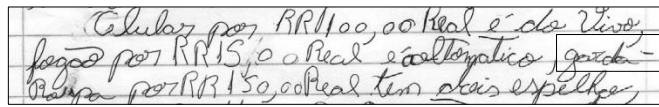 Celular por RR1100,00 Real é da Vivo,
fogão por RR15,00 Real é aoltomatico, garda-
Roupa por RR150,00 Real tem dois espelho,